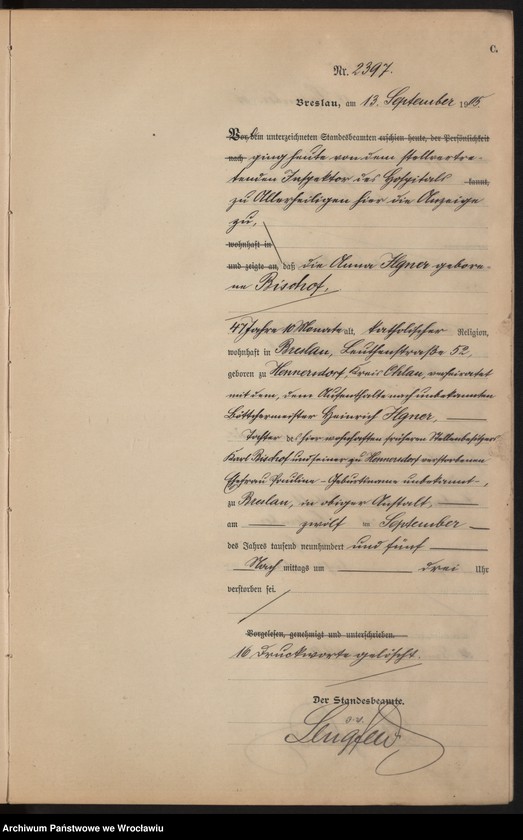 C.
Nr. 2397.
Breslau, am 13. September 1905.
Vor dem unterzeichneten Standesbeamten erschien heute, der Persönlichkeit
nach ging heute von dem stellvertre-
tenden Inspektor des Hospitals kannt,
zu Allerheiligen hier die Anzeige
zu,
wohnhaft in
und zeigte an, daß die Anna Ilgner gebore-
ne Bischof,
47 Jahre 10 Monate alt, katholischer Religion,
wohnhaft in Breslau, Leuthenstraße 52,
geboren zu Hennersdorf, Kreis Ohlau, verheiratet
mit dem, dem Aufenthalte nach unbekannten
Böttchermeister Heinrich Ilgner,
Tochter des hier wohnhaften früheren Stellenbesitzers
Karl Bischof und seiner zu Hennersdorf verstorbenen
Ehefrau Pauline - Geburtsname unbekannt -,
zu Breslau, in obiger Anstalt,
am zwölf ten September
des Jahres tausend neunhundert und fünf
Nach mittags um drei Uhr
verstorben sei.
Vorgelesen, genehmigt und unterschrieben.
16 Druckworte gelöscht.
Der Standesbeamte.
Archiwum Państwowe we Wrocławiu